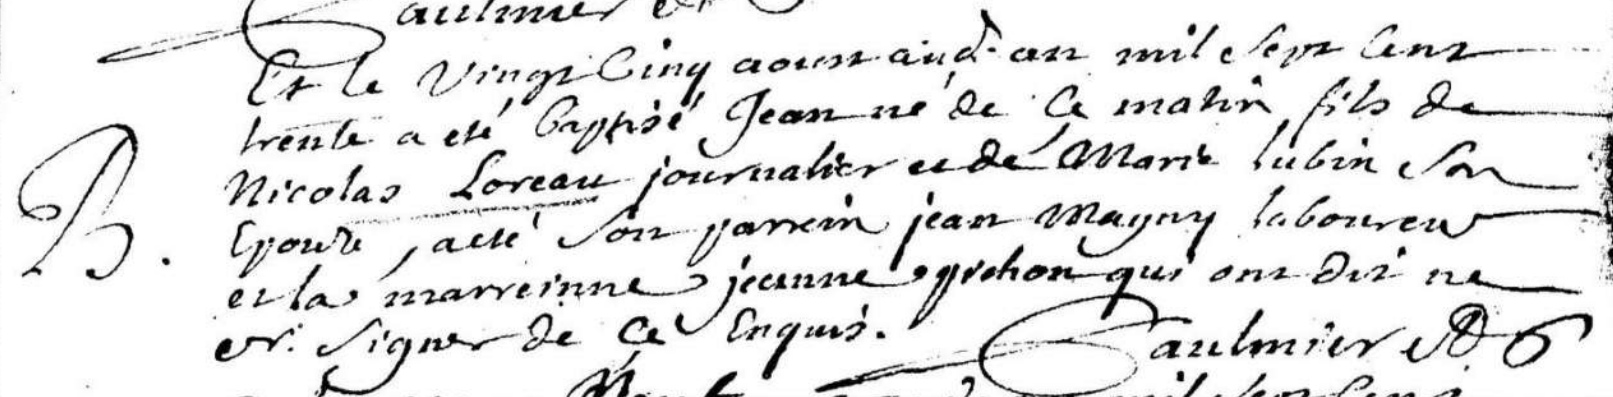 Saulmier
Et le vingt Cinq aoust aud. an mil sept Cent
trente a eté baptisé Jean né de Ce matin fils de
Nicolas Loreau journalier et de Marie lubin son
B. Epouse, a eté son parrein jean Magny laboureur
et la marreinne jeanne pichon qui ont dit ne
sr. signer de Ce Enquis. Saulmier
mil sept Cent